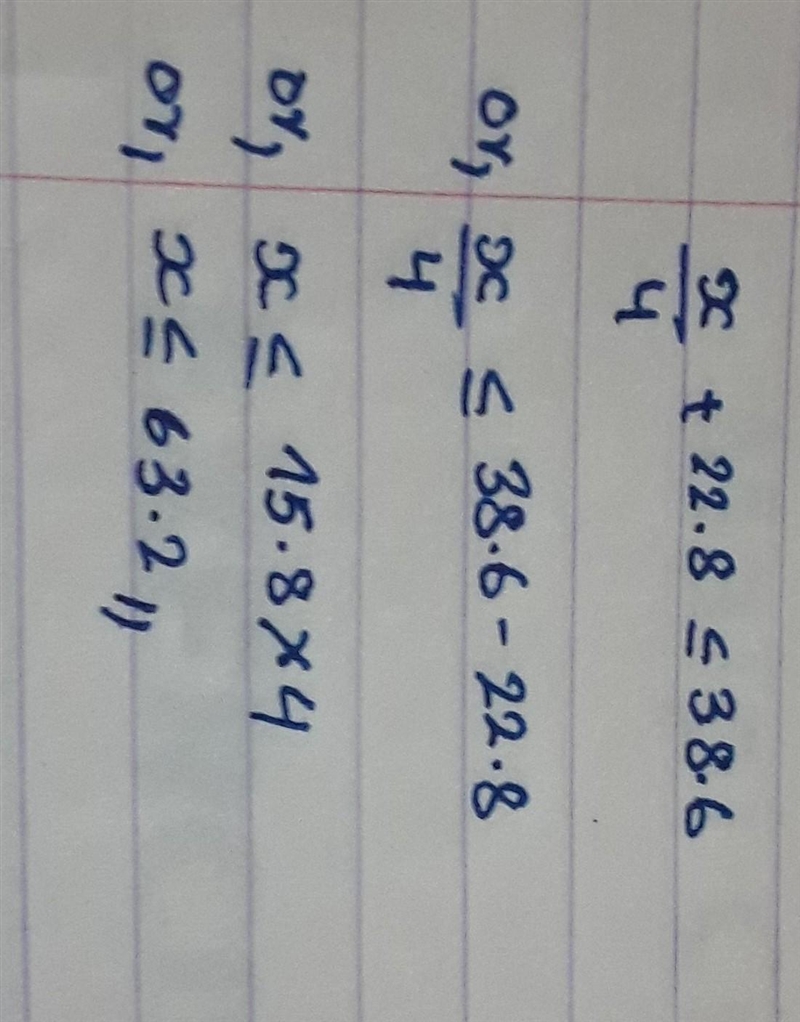 x/4 + 22.8 ≤ 38.6
or, x/4 ≤ 38.6 - 22.8
or, x ≤ 15.8 x 4
or, x ≤ 63.2 //